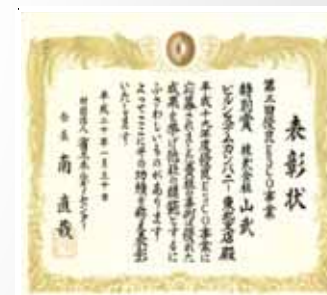 表彰状
第三回優良ESCO事業
特別賞 株式会社 山武
ビルシステムカンパニー 東北支店殿
平成十九年度優良ESCO事業に
応募された貴殿の事例は優れた
成果を挙げ他社の模範とするに
ふさわしいものがあります
よってここにその功績を称え表彰
いたします
平成二十年一月三十日
財団法人 省エネルギーセンター
会長 南 直哉